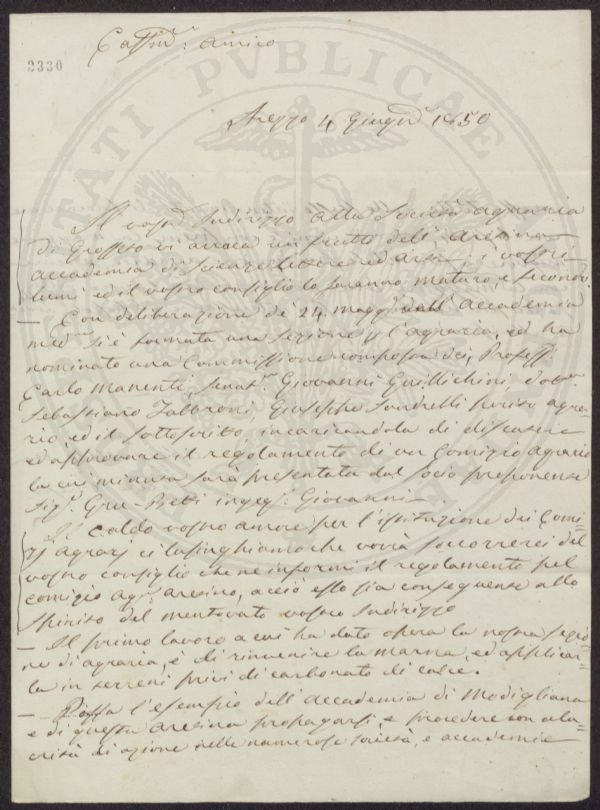 Cariss.º amico
3330
Arezzo 4 Giugno 1850
Il vostro Indirizzo alla Società agraria
di Grosseto vi arreca un frutto dell'Aretina
accademia di scienze lettere ed arti, i vostri
lumi ed il vostro consiglio lo faranno maturo, e fecondo
— Con deliberazione de' 24 maggio dell'Accademia
med.ª si è formata una sezione p l'agraria, ed ha
nominato una Commissione composta dei Profess.
Carlo Manenti, Senat.e Giovanni Guillichini, dot.r
Sebastiano Fabbroni, Giuseppe Sandrelli perito agra=
rio, ed il sottoscritto, incaricandola di discutere
ed approvare il regolamento di un Comizio agrario
la cui minuta sarà presentata dal socio proponente
Sig.r Gru-Betti ingeg.r Giovanni —
Il caldo vostro amore per l'istituzione dei Comi=
zj agrarj ci lusinghiamo che vorrà soccorrerci del
vostro consiglio che ne informi il regolamento pel
comizio agr.º aretino, acciò esso sia conseguente allo
spirito del mentovato vostro Indirizzo
— Il primo lavoro a cui ha dato opera la nostra sezio=
ne di agraria, è di rinvenire la marna, ed applicar=
la in terreni privi di carbonato di calce.
— Possa l'esempio dell'accademia di Modigliana
e di questa aretina propagarsi e procedere con ala=
crità di azione nelle numerose società, e accademie